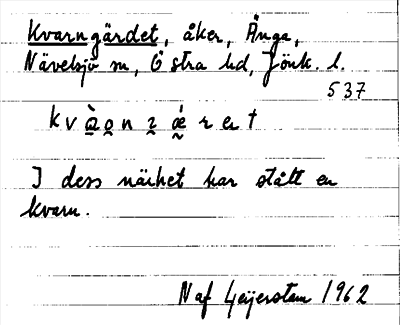 Kvarngärdet, åker, Änga,
Nävelsjö sn, Östra hd, Jönk. l.
537
I dess närhet har stått en
kvarn.
N af Geijerstam 1962